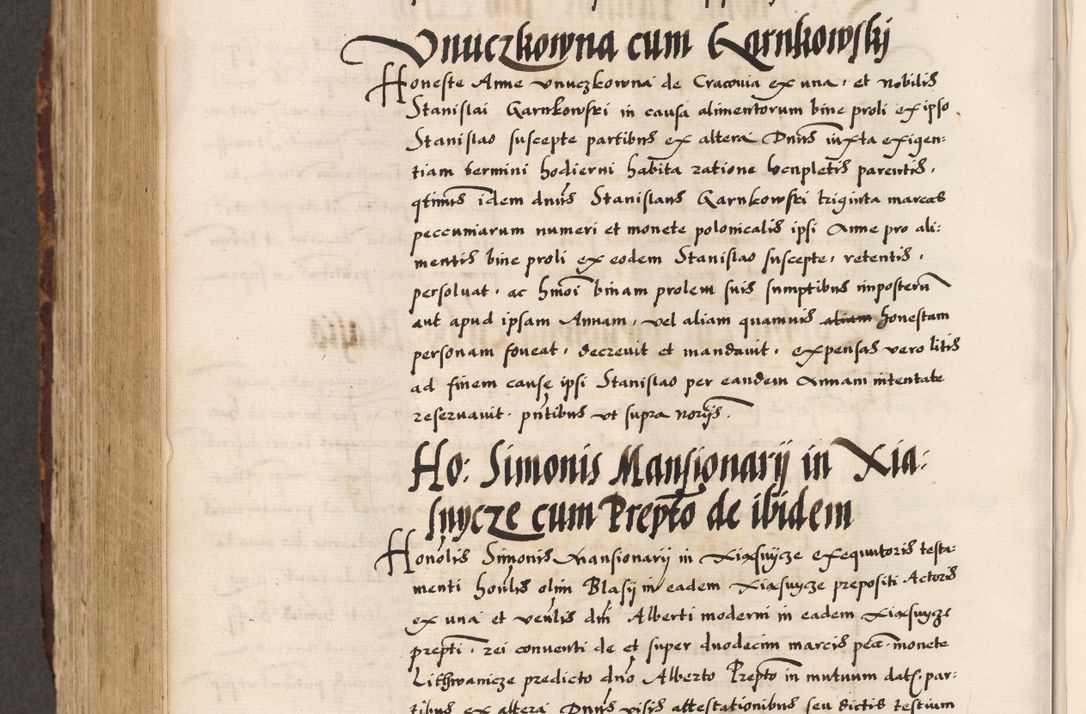 Vnuczkowna cum Garnkowskj
Honeste Anne vnuczkowna de Cracovia ex una, et nobilis
Stanislai Garnkowski in causa alimentorum bine proli ex ipso
Stanislao suscepte partibus ex altera Dnus iuxta exigen:
tiam termini hodierni habita ratione locupletis parentis,
qtinus idem dnus Stanislaus Garnkowski triginta marcas
peccuniarum numeri et monete polonicalis ipsi Anne pro ali:
mentis bine proli ex eodem Stanislao suscepte, retentis,
persoluat, ac hmoi binam prolem suis sumptibus imposteru
aut apud ipsam Annam, vel aliam quamuis aliam honestam
personam foueat, decreuit et mandauit, expensas vero litis
ad finem cause ipsi Stanislao per eandem Annam intentate
reseruauit. pntibus vt supra norijs.
Ho: Simonis Mansionarij in Xia:
snycze cum Prepto de ibidem
Honolis Simonis Mansionarij in Xiasnycze exequutoris testa:
menti honlis olim Blasij in eadem Xiasnycze prepositi Actoris
ex una et venlis dni Alberti moderni in eadem Xiasnycze
prepti, rei conuenti de et super duodecim marcis pca monete
Lithwanicze predicto dno Alberto Prepto in mutuum dats. par:
tibus ex altera Dnus visis attestationibus seu dictis testium